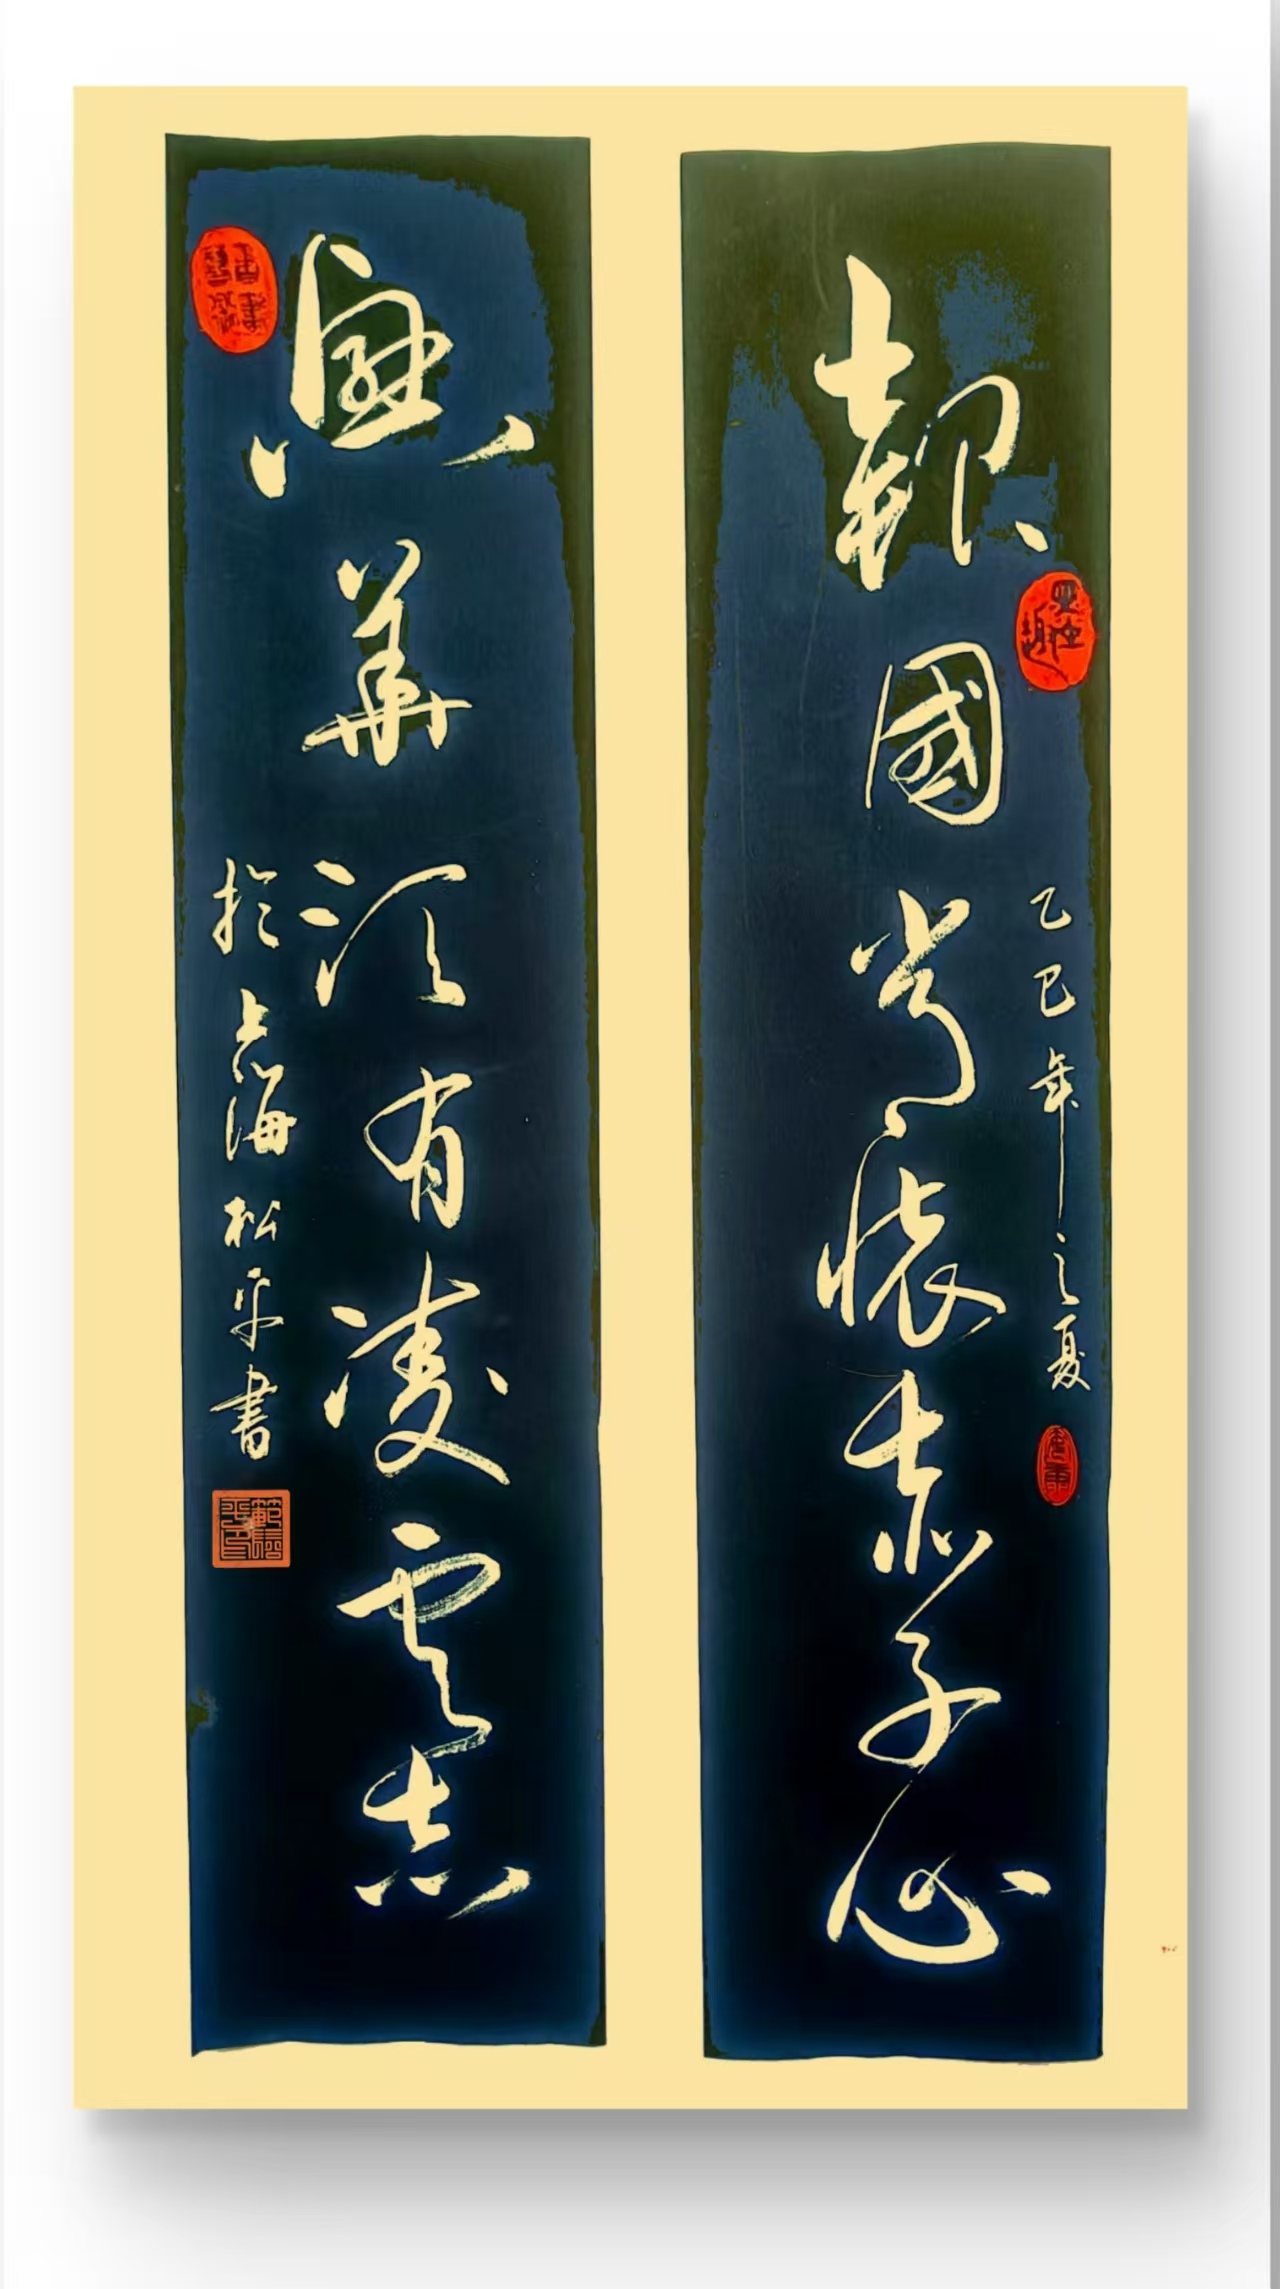 報國當懷赤子心
乙巳年之夏
興華須有凌雲志
於上海松平書